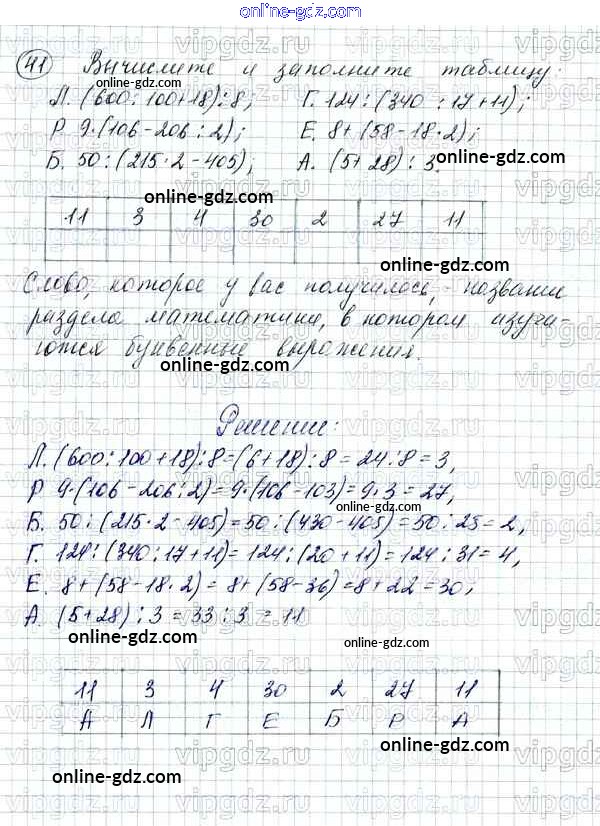 online-gdz.com
41 Вычислите и заполните таблицу:
Л. (600 : 100+18) : 8; Г. 124 : (340 : 17+11);
Р. 9·(106-206 : 2); Е. 8+(58-18·2);
Б. 50 : (215·2-405); А. (5+28) : 3.
online-gdz.com
online-gdz.com
11 3 4 30 2 27 11
online-gdz.com
Слово, которое у вас получилось, - название
раздела математики, в котором изуча-
ются буквенные выражения.
online-gdz.com
online-gdz.com
Решение:
Л. (600 : 100+18) : 8 = (6+18) : 8 = 24 : 8 = 3,
Р 9·(106-206 : 2) = 9·(106-103) = 9·3 = 27,
online-gdz.com
Б. 50 : (215·2-405) = 50 : (430-405) = 50 : 25 = 2,
Г. 124 : (340 : 17+11) = 124 : (20+11) = 124 : 31 = 4,
Е. 8+(58-18·2) = 8+(58-36) = 8+22 = 30;
А. (5+28) : 3 = 33 : 3 = 11
online-gdz.com
online-gdz.com
11 3 4 30 2 27 11
А Л Г Е Б Р А
online-gdz.com
online-gdz.com
vipgdz.ru